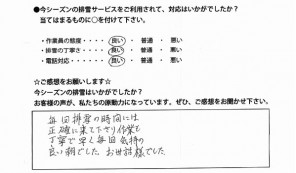 ●今シーズンの排雪サービスをご利用されて、対応はいかがでしたか?
当てはまるものに○を付けて下さい。
・作業員の態度・・・・良い・普通・悪い
・排雪の丁寧さ・・・・良い・普通・悪い
・電話対応・・・・・・良い・普通・悪い
☆ご感想をお願いします☆
今シーズンの排雪はいかがでしたか?
お客様の声が、私たちの原動力になっています。ぜひ、ご感想をお聞かせ下さい。
毎回排雪の時間には
正確に来て下さり作業も
丁寧で早く毎回気持の
良い朝でした お世話様でした。